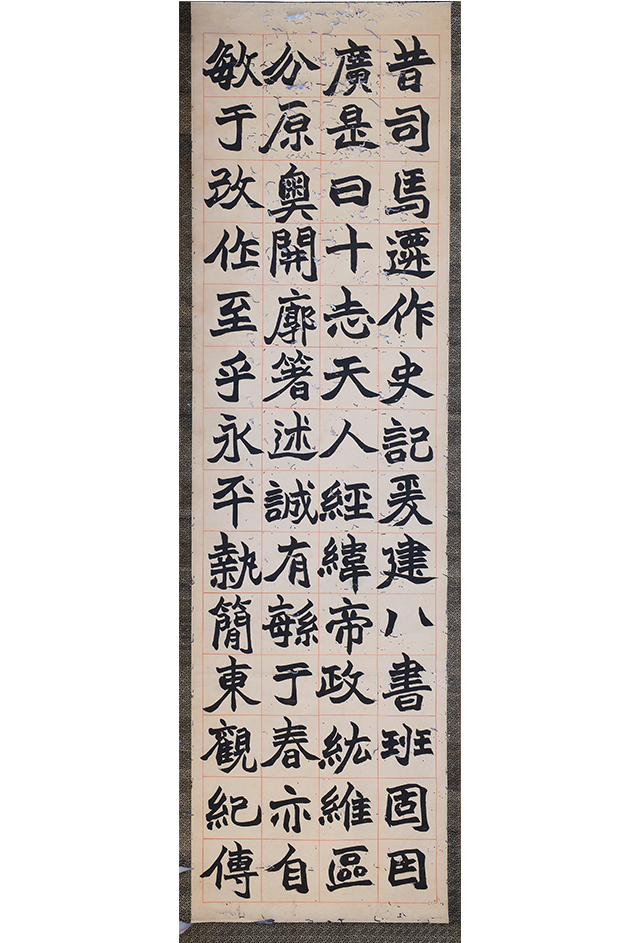 昔司馬遷作史記爰建八書班固因
廣是曰十志天人經緯帝政紘維區
分原奧開廓箸述誠有緐于春亦自
敏于改作至乎永平執簡東觀紀傳